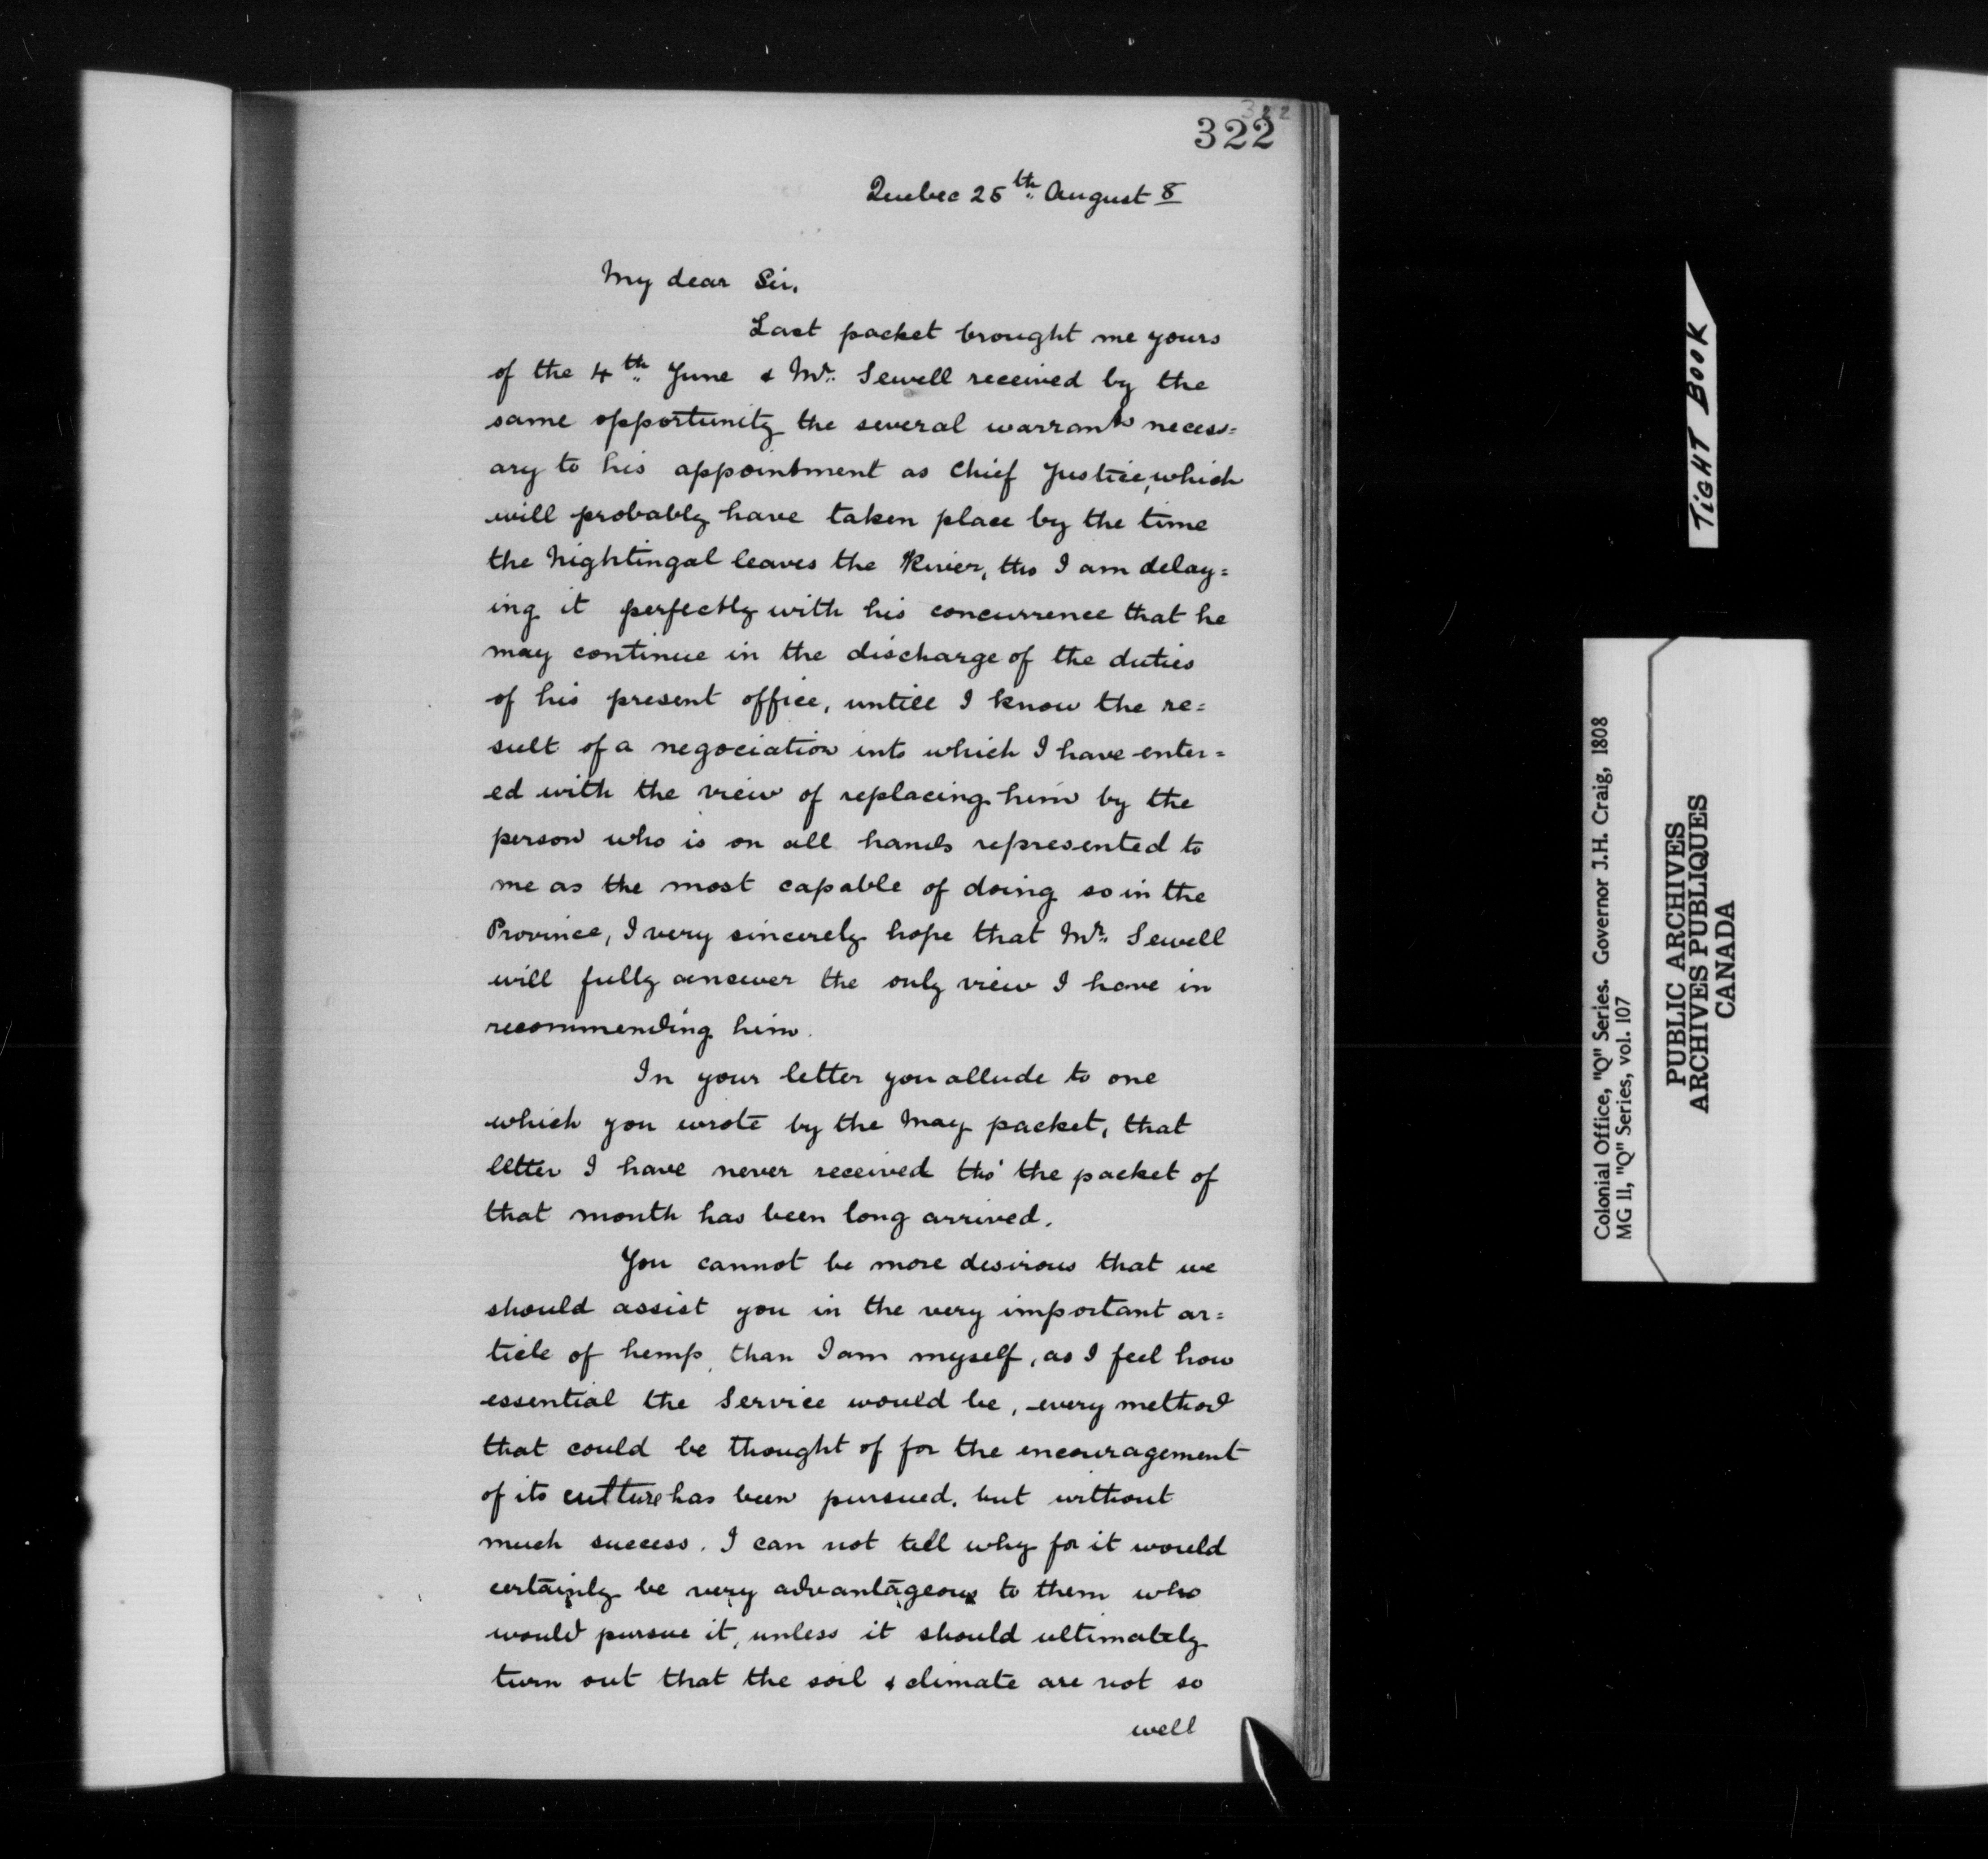 322
322
Quebec 25th August 8
My dear Sir,
Last packet brought me yours
of the 4th June & Mr. Sewell received by the
same opportunity the several warrants necess=
ary to his appointment as Chief Justice, which
will probably have taken place by the time
the Nightingal leaves the River, tho I am delay=
ing it perfectly with his concurrence that he
may continue in the discharge of the duties
of his present office, untill I know the re=
sult of a negociation into which I have enter=
ed with the view of replacing him by the
person who is on all hands represented to
me as the most capable of doing so in the
Province, I very sincerely hope that Mr. Sewell
will fully answer the only view I have in
recommending him.
In your letter you allude to one
which you wrote by the May packet, that
letter I have never received tho' the packet of
that month has been long arrived.
You cannot be more desirous that we
should assist you in the very important ar=
ticle of hemp, than I am myself, as I feel how
essential the Service would be, every method
that could be thought of for the encouragement
of its culture has been pursued, but without
much success. I can not tell why for it would
certainly be very advantageous to them who
would pursue it, unless it should ultimately
turn out that the soil & climate are not so
well
TIGHT BOOK
Colonial Office, "Q" Series. Governor J.H. Craig, 1808
MG 11, "Q" Series, vol. 107
PUBLIC ARCHIVES
ARCHIVES PUBLIQUES
CANADA